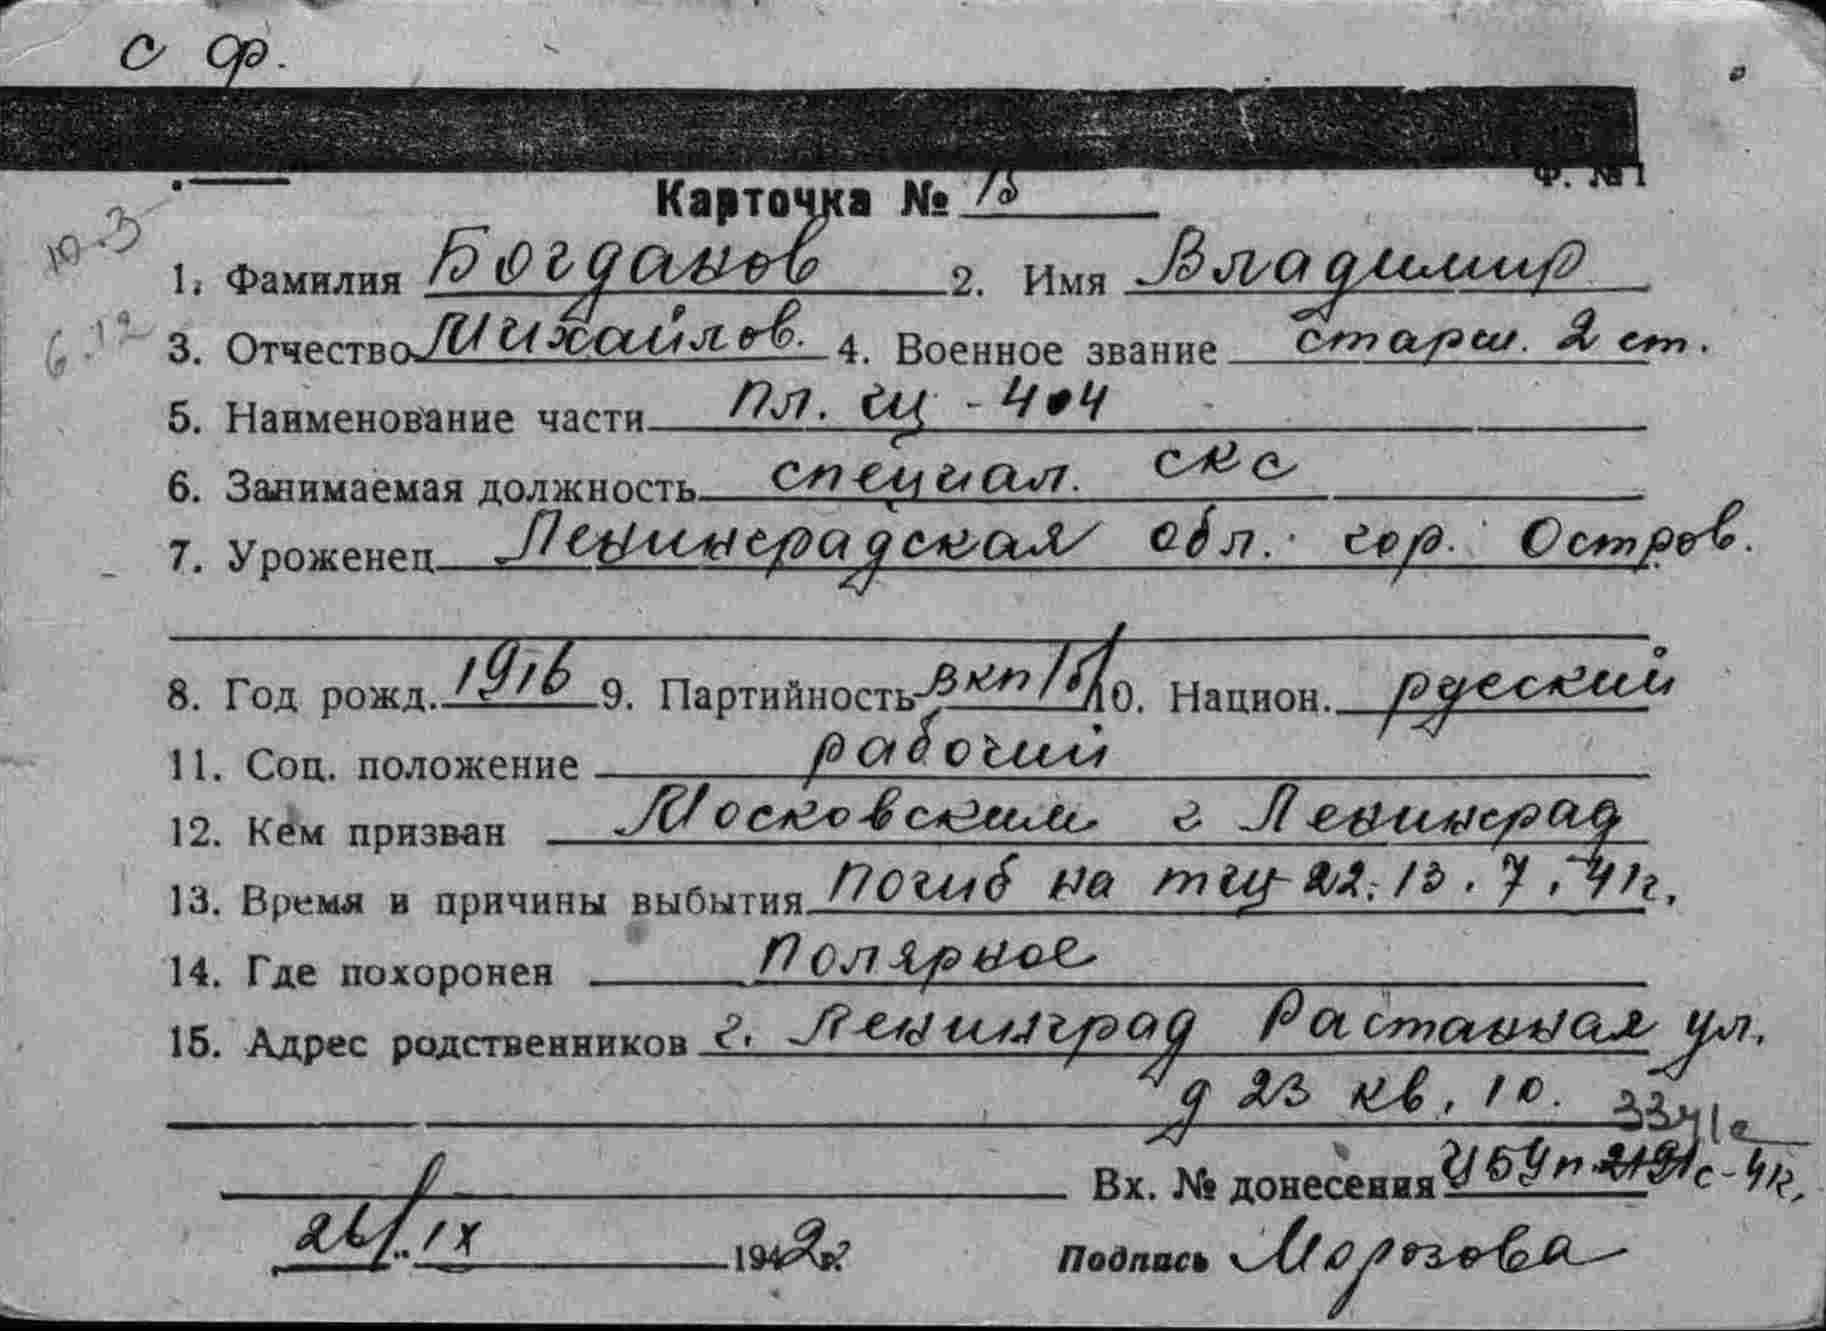 с ф.
Ф. № 1
Карточка № 13
10-3
1. Фамилия Богданов 2. Имя Владимир
6.12
3. Отчество Михайлов. 4. Военное звание старш. 2 ст.
5. Наименование части пл. щ - 404
6. Занимаемая должность специал. скс
7. Уроженец Ленинградская обл. гор. Остров.
8. Год рожд. 1916 9. Партийность ВКП/б/ 10. Национ. русский
11. Соц. положение рабочий
12. Кем призван Московским г Ленинград
13. Время и причины выбытия погиб на тщ-22. 13.7.41г.
14. Где похоронен Полярное
15. Адрес родственников г. Ленинград Растанная ул.
д 23 кв. 10.
Вх. № донесения
26/IX 1942г.
Подпись Морозова